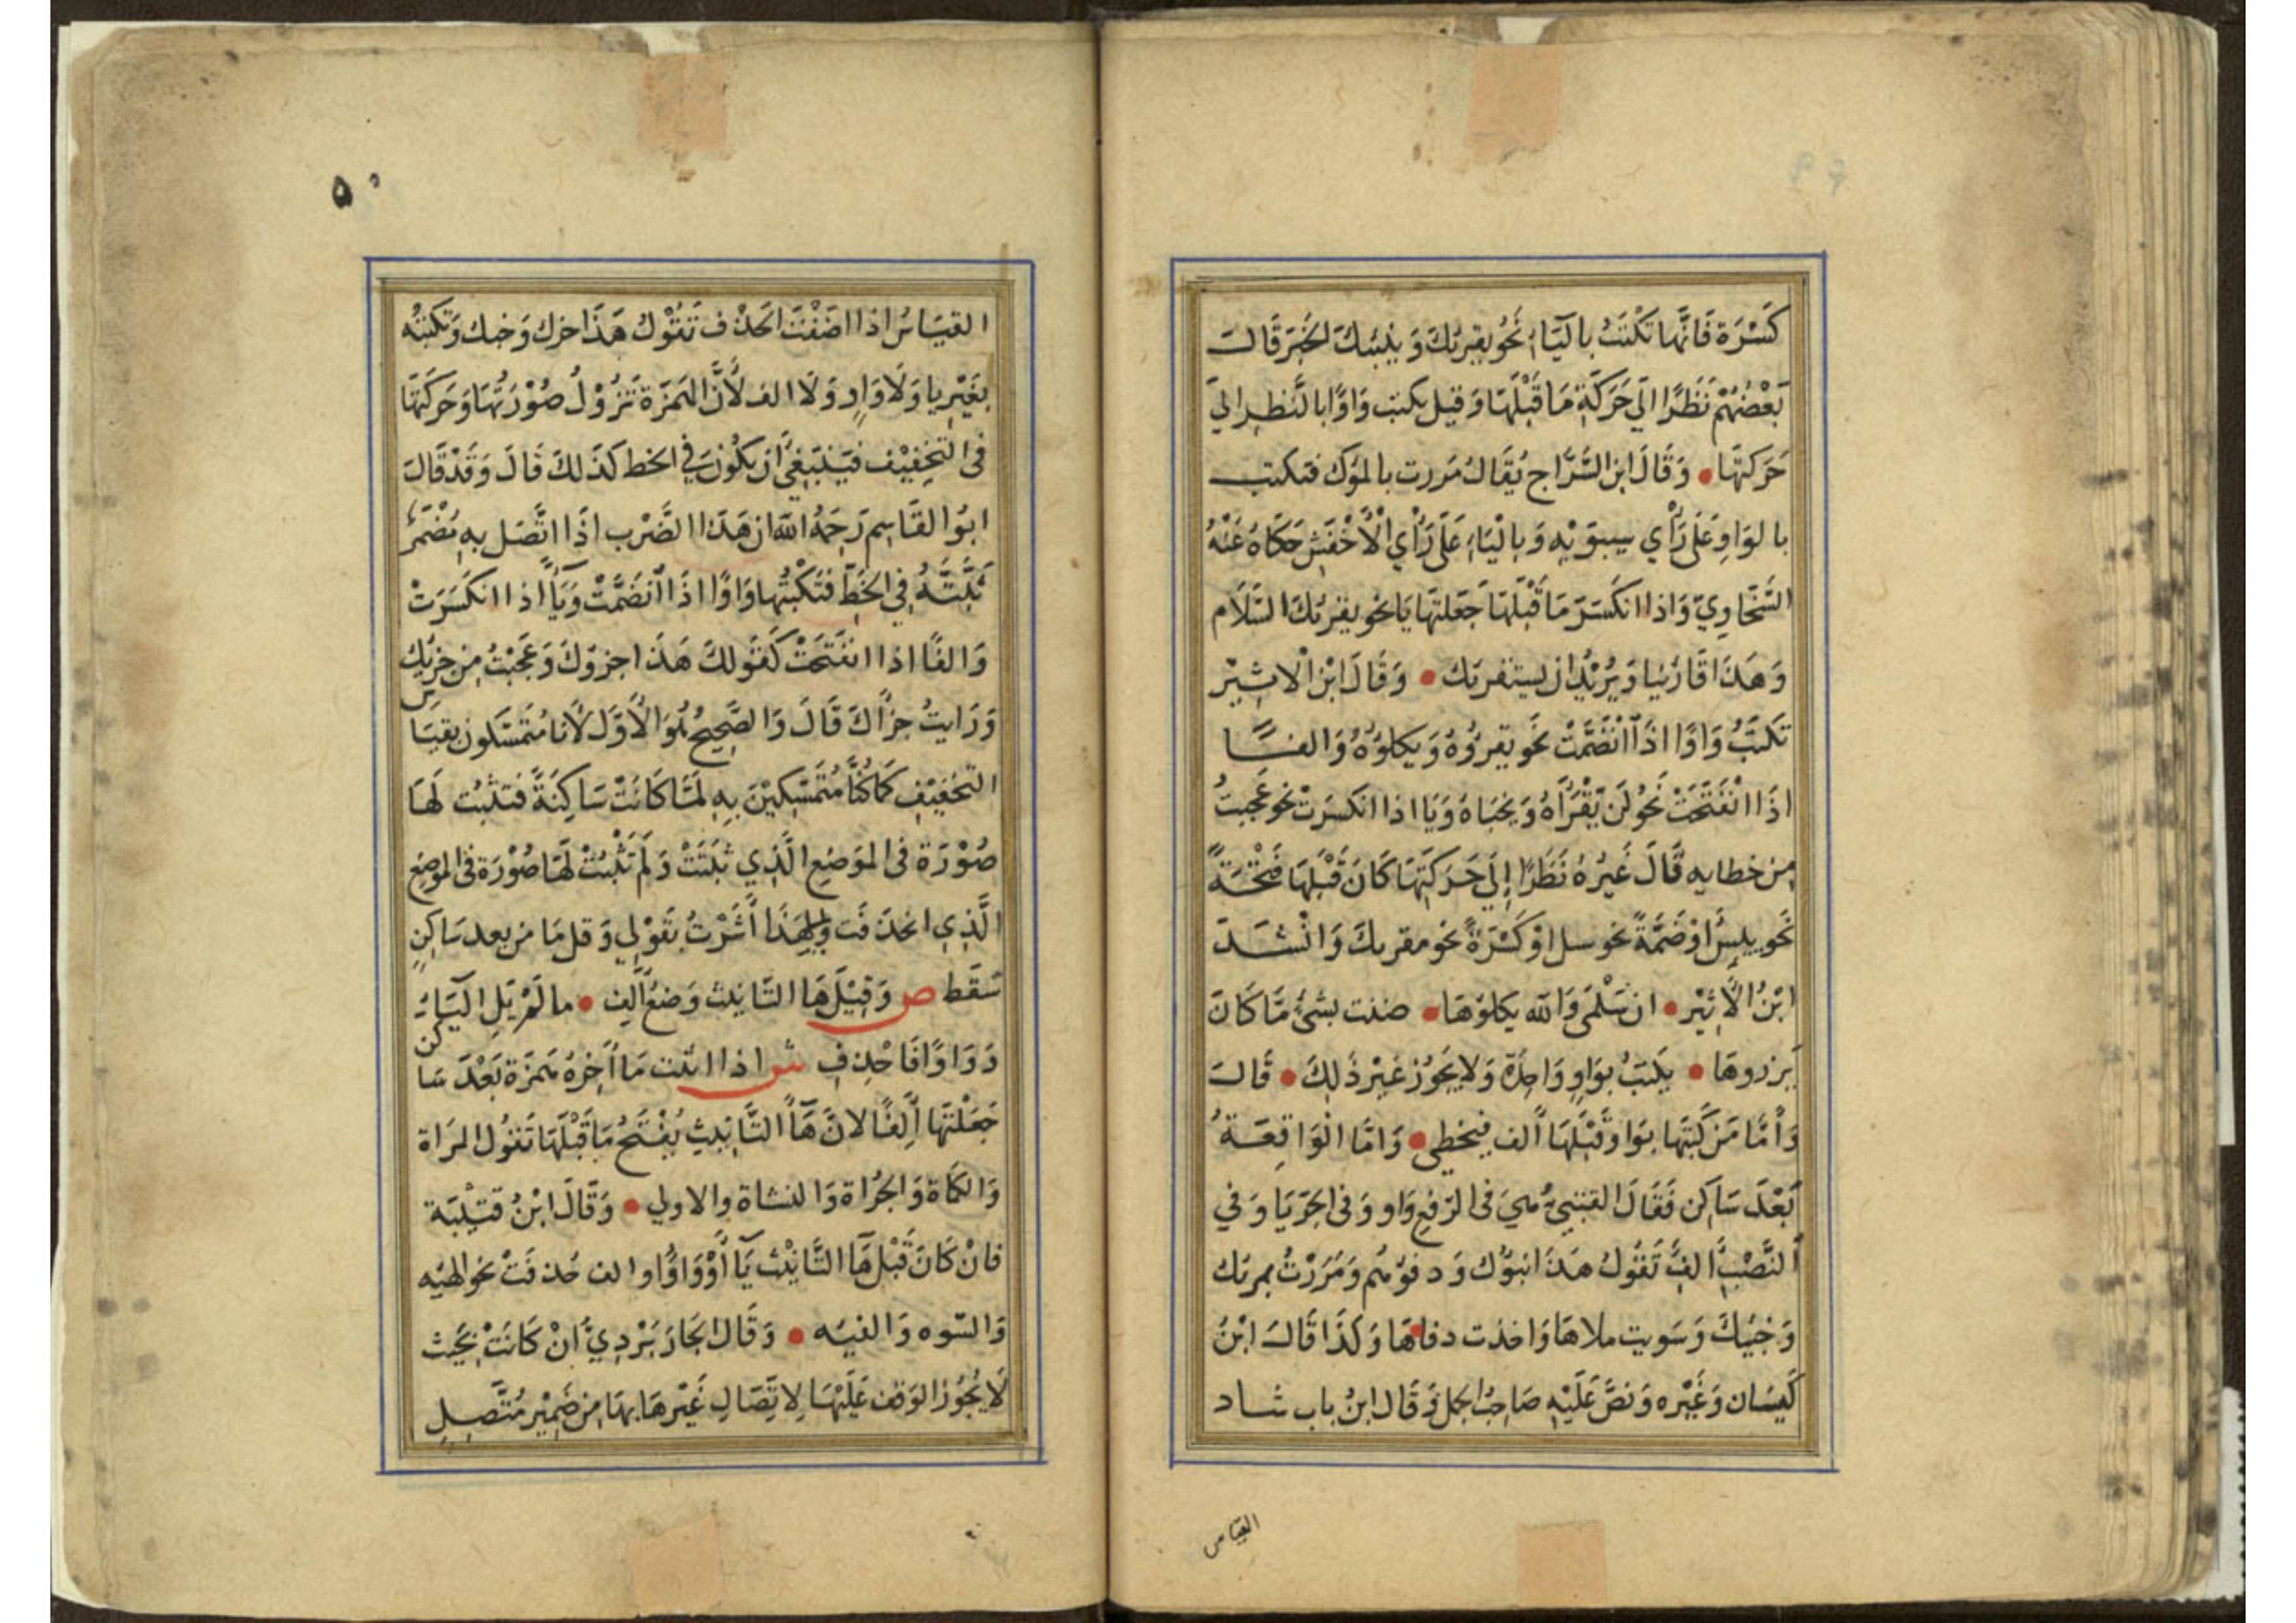 كَسْرَة فَانَّها تكتَبُ باليَاءِ نَحُو يقريُكَ وَ ينبئكَ الخَبَرَ قَالَ
بَعْضُهُمْ نَظَرًا الَي حَرَكَةِ مَا قَبْلَهَا وَقيل يكتب وَاوًا بالنَّظرِ الَي
حَرَكتهَا • وَقَالَ ابن السَّرَّاج يُقَالُ مَررت بالموَك فتكتب
بالوَاوِ عَلَى رَأْي سيبوَيْهِ وَبِاليَاءِ عَلَى رَأْي الْأَخْفَشِ حَكَاهُ عَنْهُ
السَّخَاوِيّ وَاذا انكَسَرَ مَا قَبْلَهَا جَعَلتهَا يَا نحو يقريكَ السَّلَام
وَهَذَا قَارئنا وَيُرِيْدُ ان يستقريك • وَقَالَ ابْنُ الاثِيْرِ
تكتَبُ وَاوًا اذَا انْضَمَّتْ نحَو يقرؤهُ وَيكلؤُهُ وَالفًا
اذَا انْفَتَحَتْ نَحُو لَن يَقْرَأَهُ وَيخبَاهُ وَيَا اذا انكسَرَتْ نحو عَجبتُ
مِن خطايه قَالَ غَيْرُهُ نَظَرًا إِلَي حَرَكَتِهَا كَانَ قَبْلَهَا فَتْحَةً
نحَو يييسُ اوْ ضَمَّةً نحو سل اوْ كَسْرَةً نحو مقريكَ وَانْشَدَ
ابْنُ الأَثِيْر • ان سَلْمَى وَالله يكلؤهَا • ضنت بشَئٍ مَّا كَانَ
يَرزوهَا • يكتبُ بوَاوٍ وَاحِدَة وَلا يَجُوزُ غَيْر ذَلِكَ • قَالَ
وَأَمَّا مَنْ كَتَبَهَا بوَاو وَقَبْلَهَا ألف فيخطي • وَامَّا الْوَاقِعَةُ
بَعْدَ سَاكِن فَقَالَ القتبيُّ هيَ في الرّفع وَاو وَفي الجَرّ يَا وَفي
النَّصْبِ الفُ تَقُولُ هَذَا نبؤك وَدفؤهُم وَمَرَرْتُ بمريك
وَخبْيكَ وَسَويت ملاهَا وَاخذت دفاهَا وَكَذَا قَالَ ابْنُ
كَيسَان وَغَيْره وَنصَّ عَلَيْهِ صَاحِبُ الجمل وَقَالَ ابنُ باب شاد
القيَاس
٥٠
القيَاسُ اذا اضَفْتَ الحَذْف تَقُوْلُ هَذَا حزك وَخبك وَتكتبُه
بغَيْرِ يا وَلَا وَاوٍ وَلَا الف لأَنَّ الهَمزَة تَزُوْلُ صُوْرَتُهَا وَحَرَكَتهَا
في التخِفِيْف فيَنْبَغِيَ أن يكُونَ فِي الخط كَذَلكَ قَالَ وَقَدْ قَالَ
ابوُا القَاسِم رَحِمَهُ اللهُ ان هَذَا الضَّرْب اذَا اتَّصَل بهِ مُضْمَرٌ
ثَبَّتَّهُ فِي الخَطّ فتَكْتُبُهَا وَاوًا اذَا انْضَمَّتْ وَيَآءً اذا انكَسَرَتْ
وَالفًا اذا انفَتَحَتْ كَقَولكَ هَذا جزوَكَ وَعَجبْتُ مِن جزيك
وَرَايتُ جزأَكَ قَالَ وَالصَّحِيحُ هُوَ الأَوَّل لأَنا مُتَمَسّكون بقيَاس
التخَفيْفِ كَمَا كُنَّا مُتَمَسِّكِيْنَ بِهِ لَمَّا كَانَتْ سَاكِنَةً فتثبُت لَهَا
صُوْرَة في الموَضِعِ الَّذِي ثَبَتَتْ وَلَمْ تَثْبُتْ لَهَا صُوْرَة في الموضِعِ
الَّذِي انحَذَفَت وَلِهَذَا أَشَرْتُ بقَوْلي وَقل مَا مِن بعد سَاكِنٍ
سَقَط ص وَقبْلَ هَا التَّانيث وَضعُ أَلِف • ما لَمْ يَلِ اليَاءَ
وَوَاوًا فَاحْذِفِ ش اذا انثت مَا آخِرُهُ هَمزَة بَعْدَ سَاكن
جَعَلْتَهَا أَلِفًا لانَّ هَآءَ التَّانِيثِ يُفْتَحُ مَا قَبْلَهَا تَقُولُ المرَاة
وَالكَمَاة وَالجرُاة وَالنشاة والاولي • وَقَالَ ابْنُ قتَيْبَة
فانْ كَانَ قَبْلَ هَآء التَّانِيْث يَآءٌ أَوْ وَاوٌ او الف حُذفَتْ نحو الهيئه
وَالسّوه وَالفيئه • وَقَال الجَارَبَرْدِيُّ انْ كَانَتْ بِحَيْث
لَا يُجُوزُ الوَقف عَلَيْهَا لِاتِّصَالِ غَيْرِهَا بهَا مِن ضَمِيْرٍ مُتَّصِلٍ